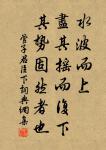 水波而上
盡其搖而復下
其勢固然者也
管子君臣下詞典網集